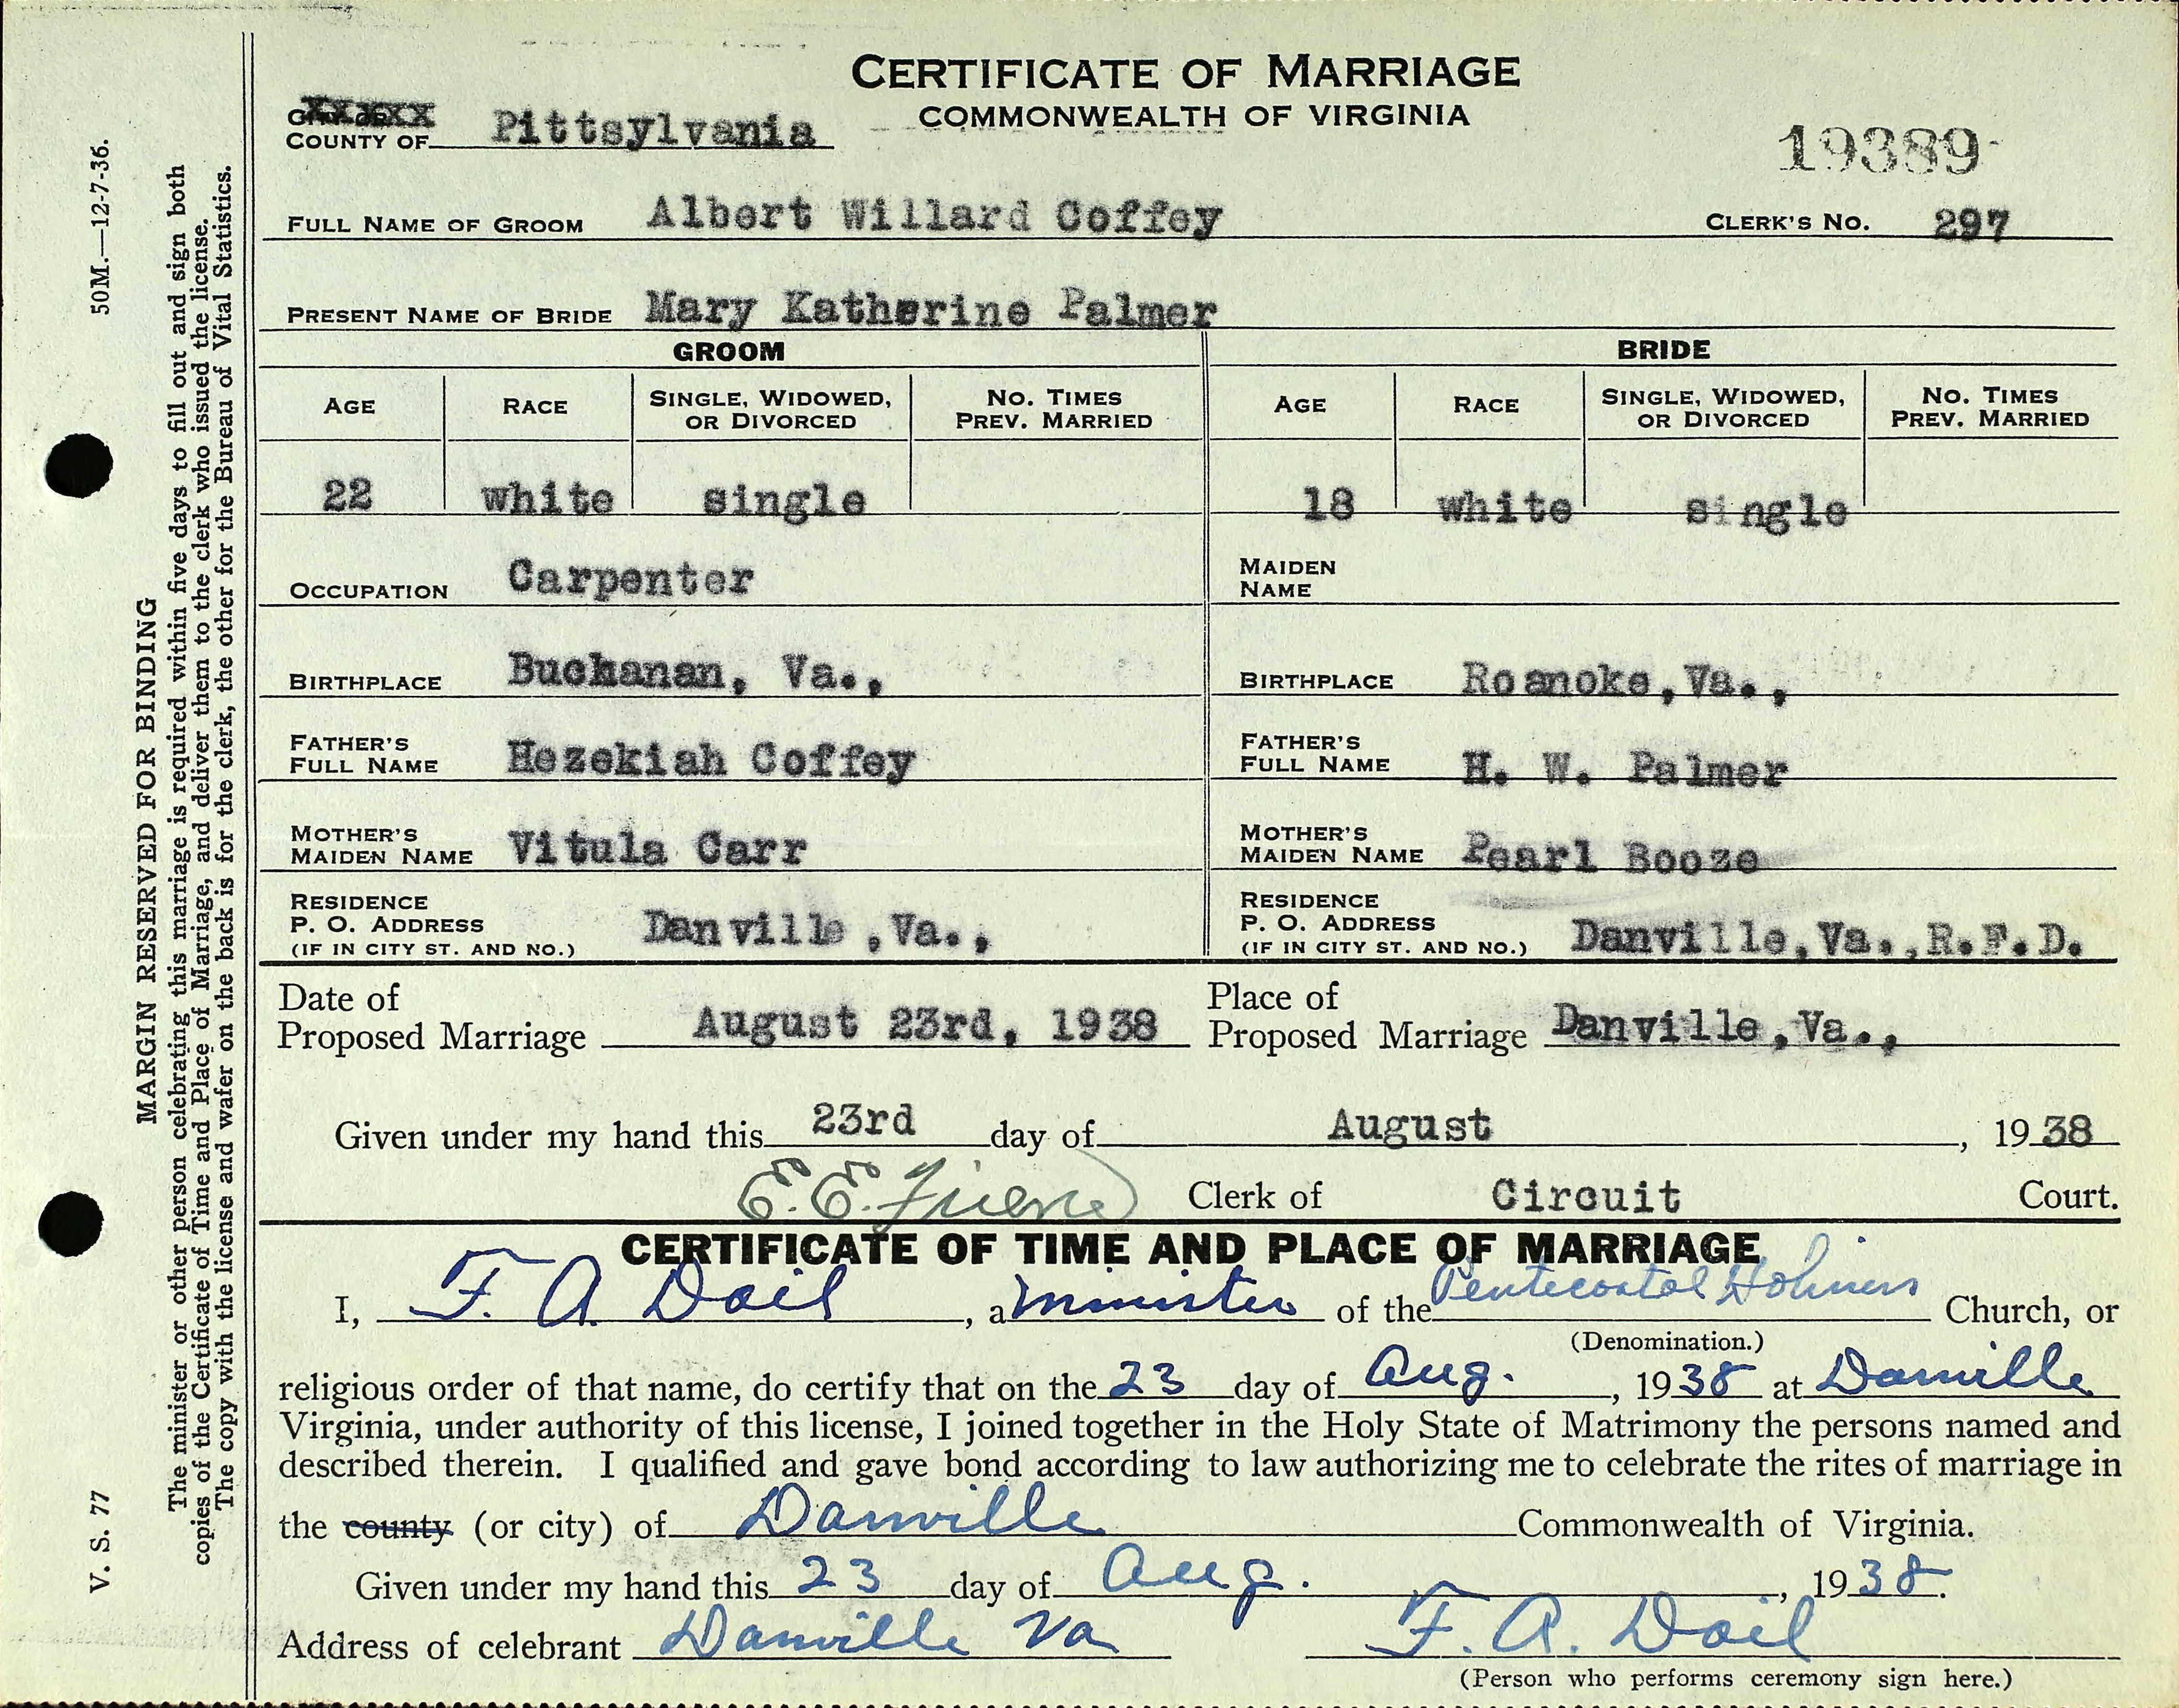 CERTIFICATE OF MARRIAGE
COMMONWEALTH OF VIRGINIA
CITY OR
COUNTY OF Pittsylvania
19389
FULL NAME OF GROOM Albert Willard Coffey CLERK'S NO. 297
PRESENT NAME OF BRIDE Mary Katherine Palmer
GROOM BRIDE
AGE RACE SINGLE, WIDOWED, OR DIVORCED NO. TIMES PREV. MARRIED AGE RACE SINGLE, WIDOWED, OR DIVORCED NO. TIMES PREV. MARRIED
22 white single 18 white single
OCCUPATION Carpenter MAIDEN NAME
BIRTHPLACE Buchanan, Va., BIRTHPLACE Roanoke, Va.,
FATHER'S FULL NAME Hezekiah Coffey FATHER'S FULL NAME H. W. Palmer
MOTHER'S MAIDEN NAME Vitula Carr MOTHER'S MAIDEN NAME Pearl Booze
RESIDENCE P. O. ADDRESS (IF IN CITY ST. AND NO.) Danville, Va., RESIDENCE P. O. ADDRESS (IF IN CITY ST. AND NO.) Danville, Va., R.F.D.
Date of Proposed Marriage August 23rd, 1938 Place of Proposed Marriage Danville, Va.,
Given under my hand this 23rd day of August, 1938
E. E. Friend Clerk of Circuit Court.
CERTIFICATE OF TIME AND PLACE OF MARRIAGE
I, F. A. Dail, a minister of the Pentecostal Holiness Church, or
(Denomination.)
religious order of that name, do certify that on the 23 day of Aug., 1938 at Danville
Virginia, under authority of this license, I joined together in the Holy State of Matrimony the persons named and
described therein. I qualified and gave bond according to law authorizing me to celebrate the rites of marriage in
the county (or city) of Danville Commonwealth of Virginia.
Given under my hand this 23 day of Aug., 1938.
Address of celebrant Danville Va F. A. Dail
(Person who performs ceremony sign here.)
V. S. 77 50M.—12-7-36.
MARGIN RESERVED FOR BINDING
The minister or other person celebrating this marriage is required within five days to fill out and sign both
copies of the Certificate of Time and Place of Marriage, and deliver them to the clerk who issued the license.
The copy with the license and wafer on the back is for the clerk, the other for the Bureau of Vital Statistics.